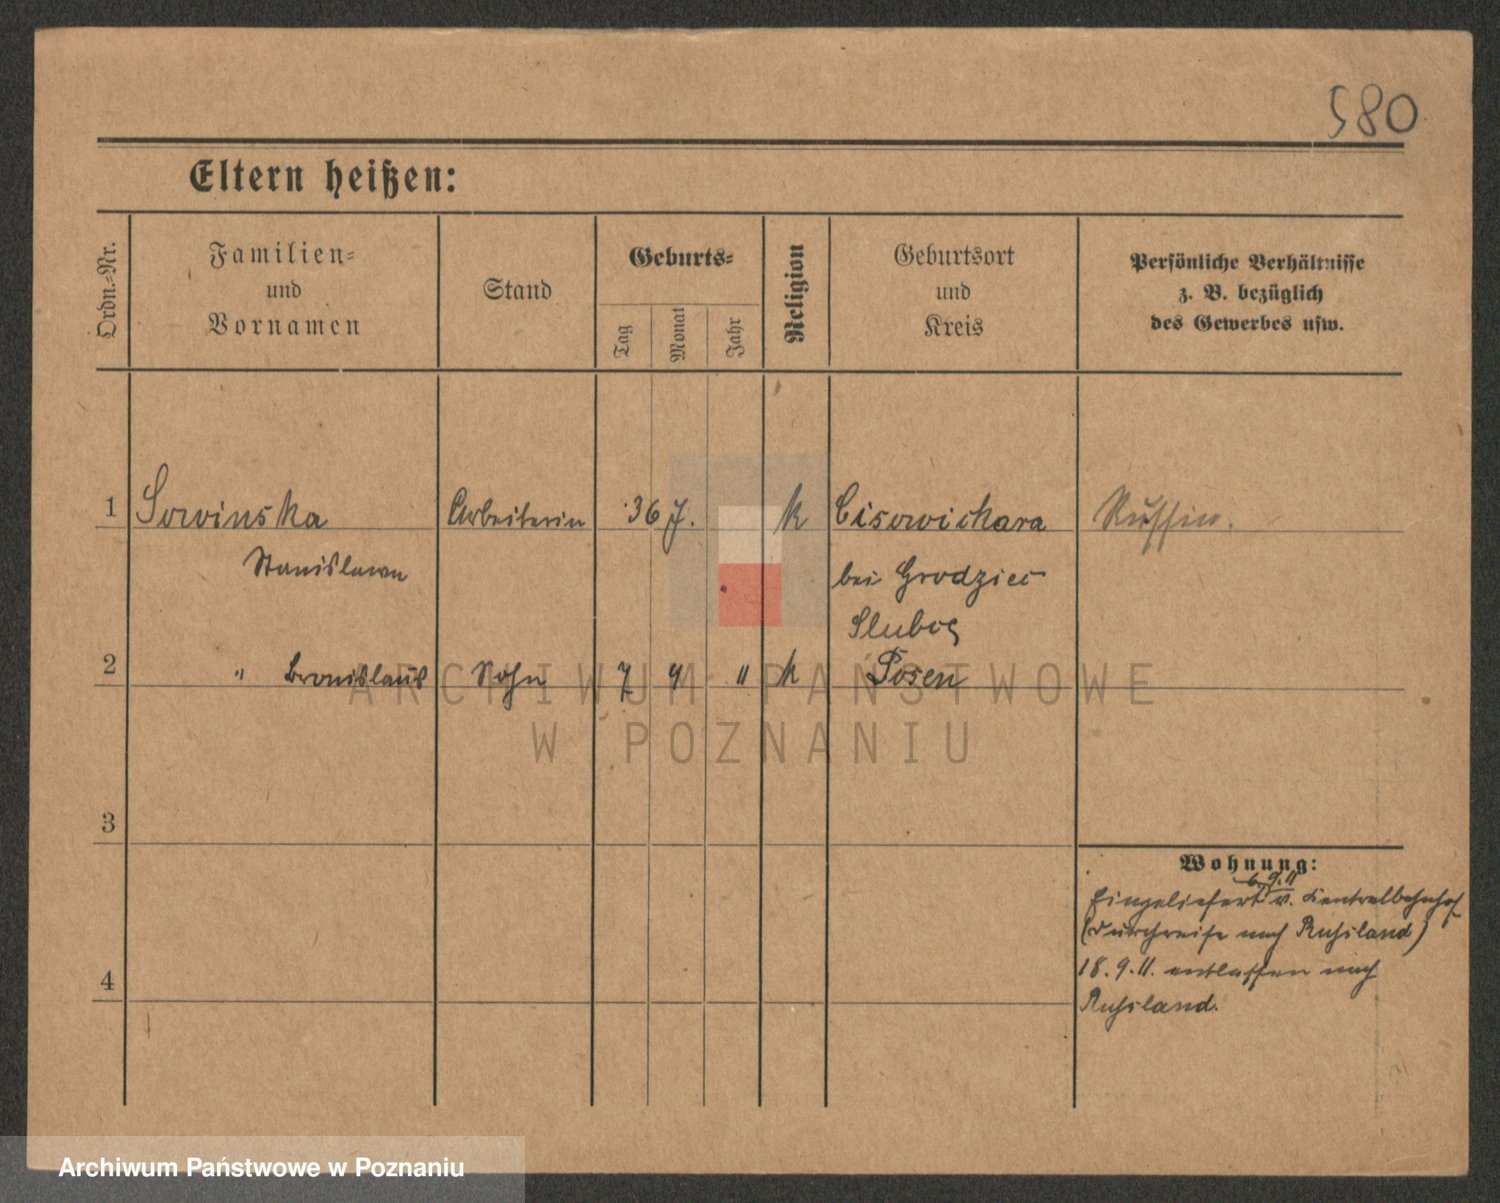 580
Eltern heißen:
Ordn.-Nr.
Familien-
und
Vornamen
Stand
Geburts-
Tag
Monat
Jahr
Religion
Geburtsort
und
Kreis
Persönliche Verhältnisse
z. B. bezüglich
des Gewerbes usw.
1 Sowinska Arbeiterin 36 J. k Cisowichara Russin.
Stanislawa bei Grodziec
Slubcg
2 " Bronislaus Sohn 7 9 11 k Posen
3
Wohnung:
6.9.11
Eingeliefert v. Centralbahnhof
(Durchreise nach Russland)
4
18.9.11. entlassen nach
Russland.
ARCHIWUM PAŃSTWOWE
W POZNANIU
Archiwum Państwowe w Poznaniu